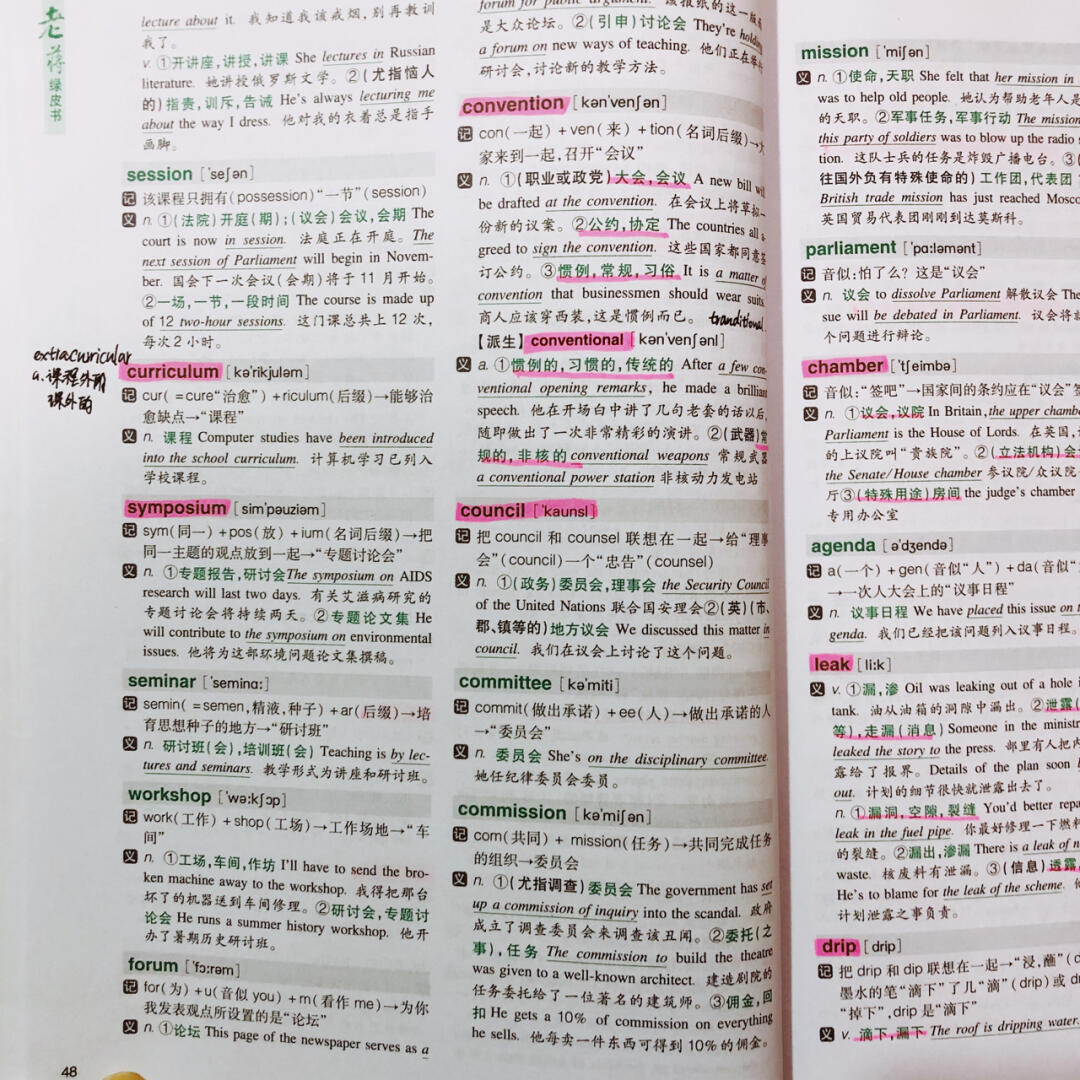 老蒋
绿皮书
lecture about it. 我知道我该戒烟,别再教训
我了。
v. ①开讲座,讲授,讲课 She lectures in Russian
literature. 她讲授俄罗斯文学。②(尤指恼人
的)指责,训斥,告诫 He's always lecturing me
about the way I dress. 他对我的衣着总是指手
画脚。
session [ˈseʃən]
记 该课程只拥有(possession)“一节”(session)
义 n. ①(法院)开庭(期);(议会)会议,会期 The
court is now in session. 法庭正在开庭。The
next session of Parliament will begin in Novem-
ber. 国会下一次会议(会期)将于11月开始。
②一场,一节,一段时间 The course is made up
of 12 two-hour sessions. 这门课总共上12次,
每次2小时。
extracurricular
a. 课程外的
课外的
curriculum [kəˈrikjuləm]
记 cur( =cure“治愈”) +riculum(后缀)→能够治
愈缺点→“课程”
义 n. 课程 Computer studies have been introduced
into the school curriculum. 计算机学习已列入
学校课程。
symposium [simˈpəuziəm]
记 sym(同一) +pos(放) +ium(名词后缀)→把
同一主题的观点放到一起→“专题讨论会”
义 n. ①专题报告,研讨会The symposium on AIDS
research will last two days. 有关艾滋病研究的
专题讨论会将持续两天。②专题论文集 He
will contribute to the symposium on environmental
issues. 他将为这部环境问题论文集撰稿。
seminar [ˈseminɑː]
记 semin( =semen,精液,种子) +ar(后缀)→培
育思想种子的地方→“研讨班”
义 n. 研讨班(会),培训班(会) Teaching is by lec-
tures and seminars. 教学形式为讲座和研讨班。
workshop [ˈwəːkʃɔp]
记 work(工作) +shop(工场)→工作场地→“车
间”
义 n. ①工场,车间,作坊 I'll have to send the bro-
ken machine away to the workshop. 我得把那台
坏了的机器送到车间修理。②研讨会,专题讨
论会 He runs a summer history workshop. 他开
办了暑期历史研讨班。
forum [ˈfɔːrəm]
记 for(为) +u(音似 you) +m(看作 me)→为你
我发表观点所设置的是“论坛”
义 n. ①论坛 This page of the newspaper serves as a
48
forum for public argument. 该报纸的这一版
是大众论坛。②(引申)讨论会 They're holding
a forum on new ways of teaching. 他们正在举行
研讨会,讨论新的教学方法。
convention [kənˈvenʃən]
记 con(一起) +ven(来) +tion(名词后缀)→大
家来到一起,召开“会议”
义 n. ①(职业或政党)大会,会议 A new bill will
be drafted at the convention. 在会议上将草拟一
份新的议案。②公约,协定 The countries all a-
greed to sign the convention. 这些国家都同意签
订公约。③惯例,常规,习俗 It is a matter of
convention that businessmen should wear suits.
商人应该穿西装,这是惯例而已。 tranditional.
【派生】conventional [kənˈvenʃənl]
a. ①惯例的,习惯的,传统的 After a few con-
ventional opening remarks, he made a brilliant
speech. 他在开场白中讲了几句老套的话以后,
随即做出了一次非常精彩的演讲。②(武器)常
规的,非核的 conventional weapons 常规武器
a conventional power station 非核动力发电站
council [ˈkaunsl]
记 把 council 和 counsel 联想在一起→给“理事
会”(council)一个“忠告”(counsel)
义 n. ①(政务)委员会,理事会 the Security Council
of the United Nations 联合国安理会②(英)(市、
郡、镇等的)地方议会 We discussed this matter in
council. 我们在议会上讨论了这个问题。
committee [kəˈmiti]
记 commit(做出承诺) +ee(人)→做出承诺的人
→“委员会”
义 n. 委员会 She's on the disciplinary committee.
她任纪律委员会委员。
commission [kəˈmiʃən]
记 com(共同) + mission(任务)→共同完成任务
的组织→委员会
义 n. ①(尤指调查)委员会 The government has set
up a commission of inquiry into the scandal. 政府
成立了调查委员会来调查该丑闻。②委托(之
事),任务 The commission to build the theatre
was given to a well-known architect. 建造剧院的
任务委托给了一位著名的建筑师。③佣金,回
扣 He gets a 10% of commission on everything
he sells. 他每卖一件东西可得到10%的佣金。
mission [ˈmiʃən]
义 n. ①使命,天职 She felt that her mission in
was to help old people. 她认为帮助老年人是
的天职。②军事任务,军事行动 The mission
this party of soldiers was to blow up the radio
tion. 这队士兵的任务是炸毁广播电台。③(
往国外负有特殊使命的)工作团,代表团
British trade mission has just reached Moscow
英国贸易代表团刚刚到达莫斯科。
parliament [ˈpɑːləmənt]
记 音似:怕了么?这是“议会”
义 n. 议会 to dissolve Parliament 解散议会 The
sue will be debated in Parliament. 议会将就
个问题进行辩论。
chamber [ˈtʃeimbə]
记 音似:“签吧”→国家间的条约应在“议会”签
义 n. ①议会,议院 In Britain, the upper chamber
Parliament is the House of Lords. 在英国,
的上议院叫“贵族院”。②(立法机构)会
the Senate/House chamber 参议院/众议院
厅③(特殊用途)房间 the judge's chamber
专用办公室
agenda [əˈdʒendə]
记 a(一个) +gen(音似“人”) +da(音似“
→一次人大会上的“议事日程”
义 n. 议事日程 We have placed this issue on
genda. 我们已经把该问题列入议事日程。
leak [liːk]
义 v. ①漏,渗 Oil was leaking out of a hole i
tank. 油从油箱的洞隙中漏出。②泄露(
等),走漏(消息) Someone in the ministr
leaked the story to the press. 部里有人把内
露给了报界。Details of the plan soon
out. 计划的细节很快就泄露出去了。
n. ①漏洞,空隙,裂缝 You'd better repa
leak in the fuel pipe. 你最好修理一下燃料
的裂缝。②漏出,渗漏 There is a leak of n
waste. 核废料有泄漏。③(信息)透露
He's to blame for the leak of the scheme.
计划泄露之事负责。
drip [drip]
记 把 drip 和 dip 联想在一起→“浸,蘸”(
墨水的笔“滴下”了几“滴”(drip)或
“掉下”,drip 是“滴下”
义 v. 滴下,漏下 The roof is dripping water.